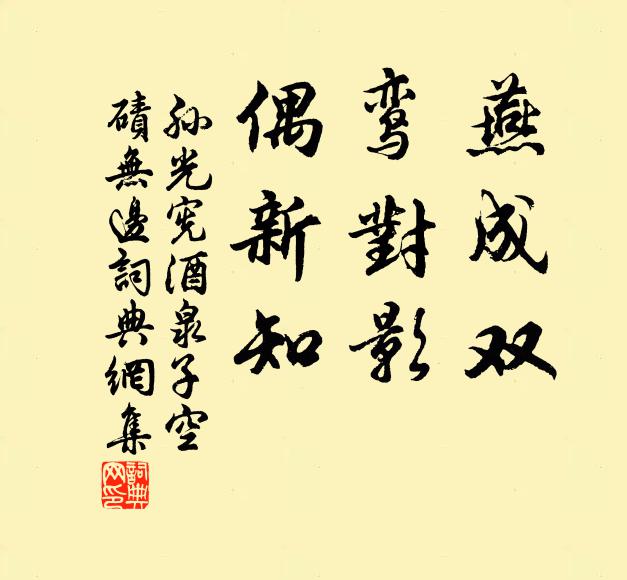 燕成双
鸾對影
偶新知
孙光宪酒泉子空
磧無邊詞典網集
詞典网印